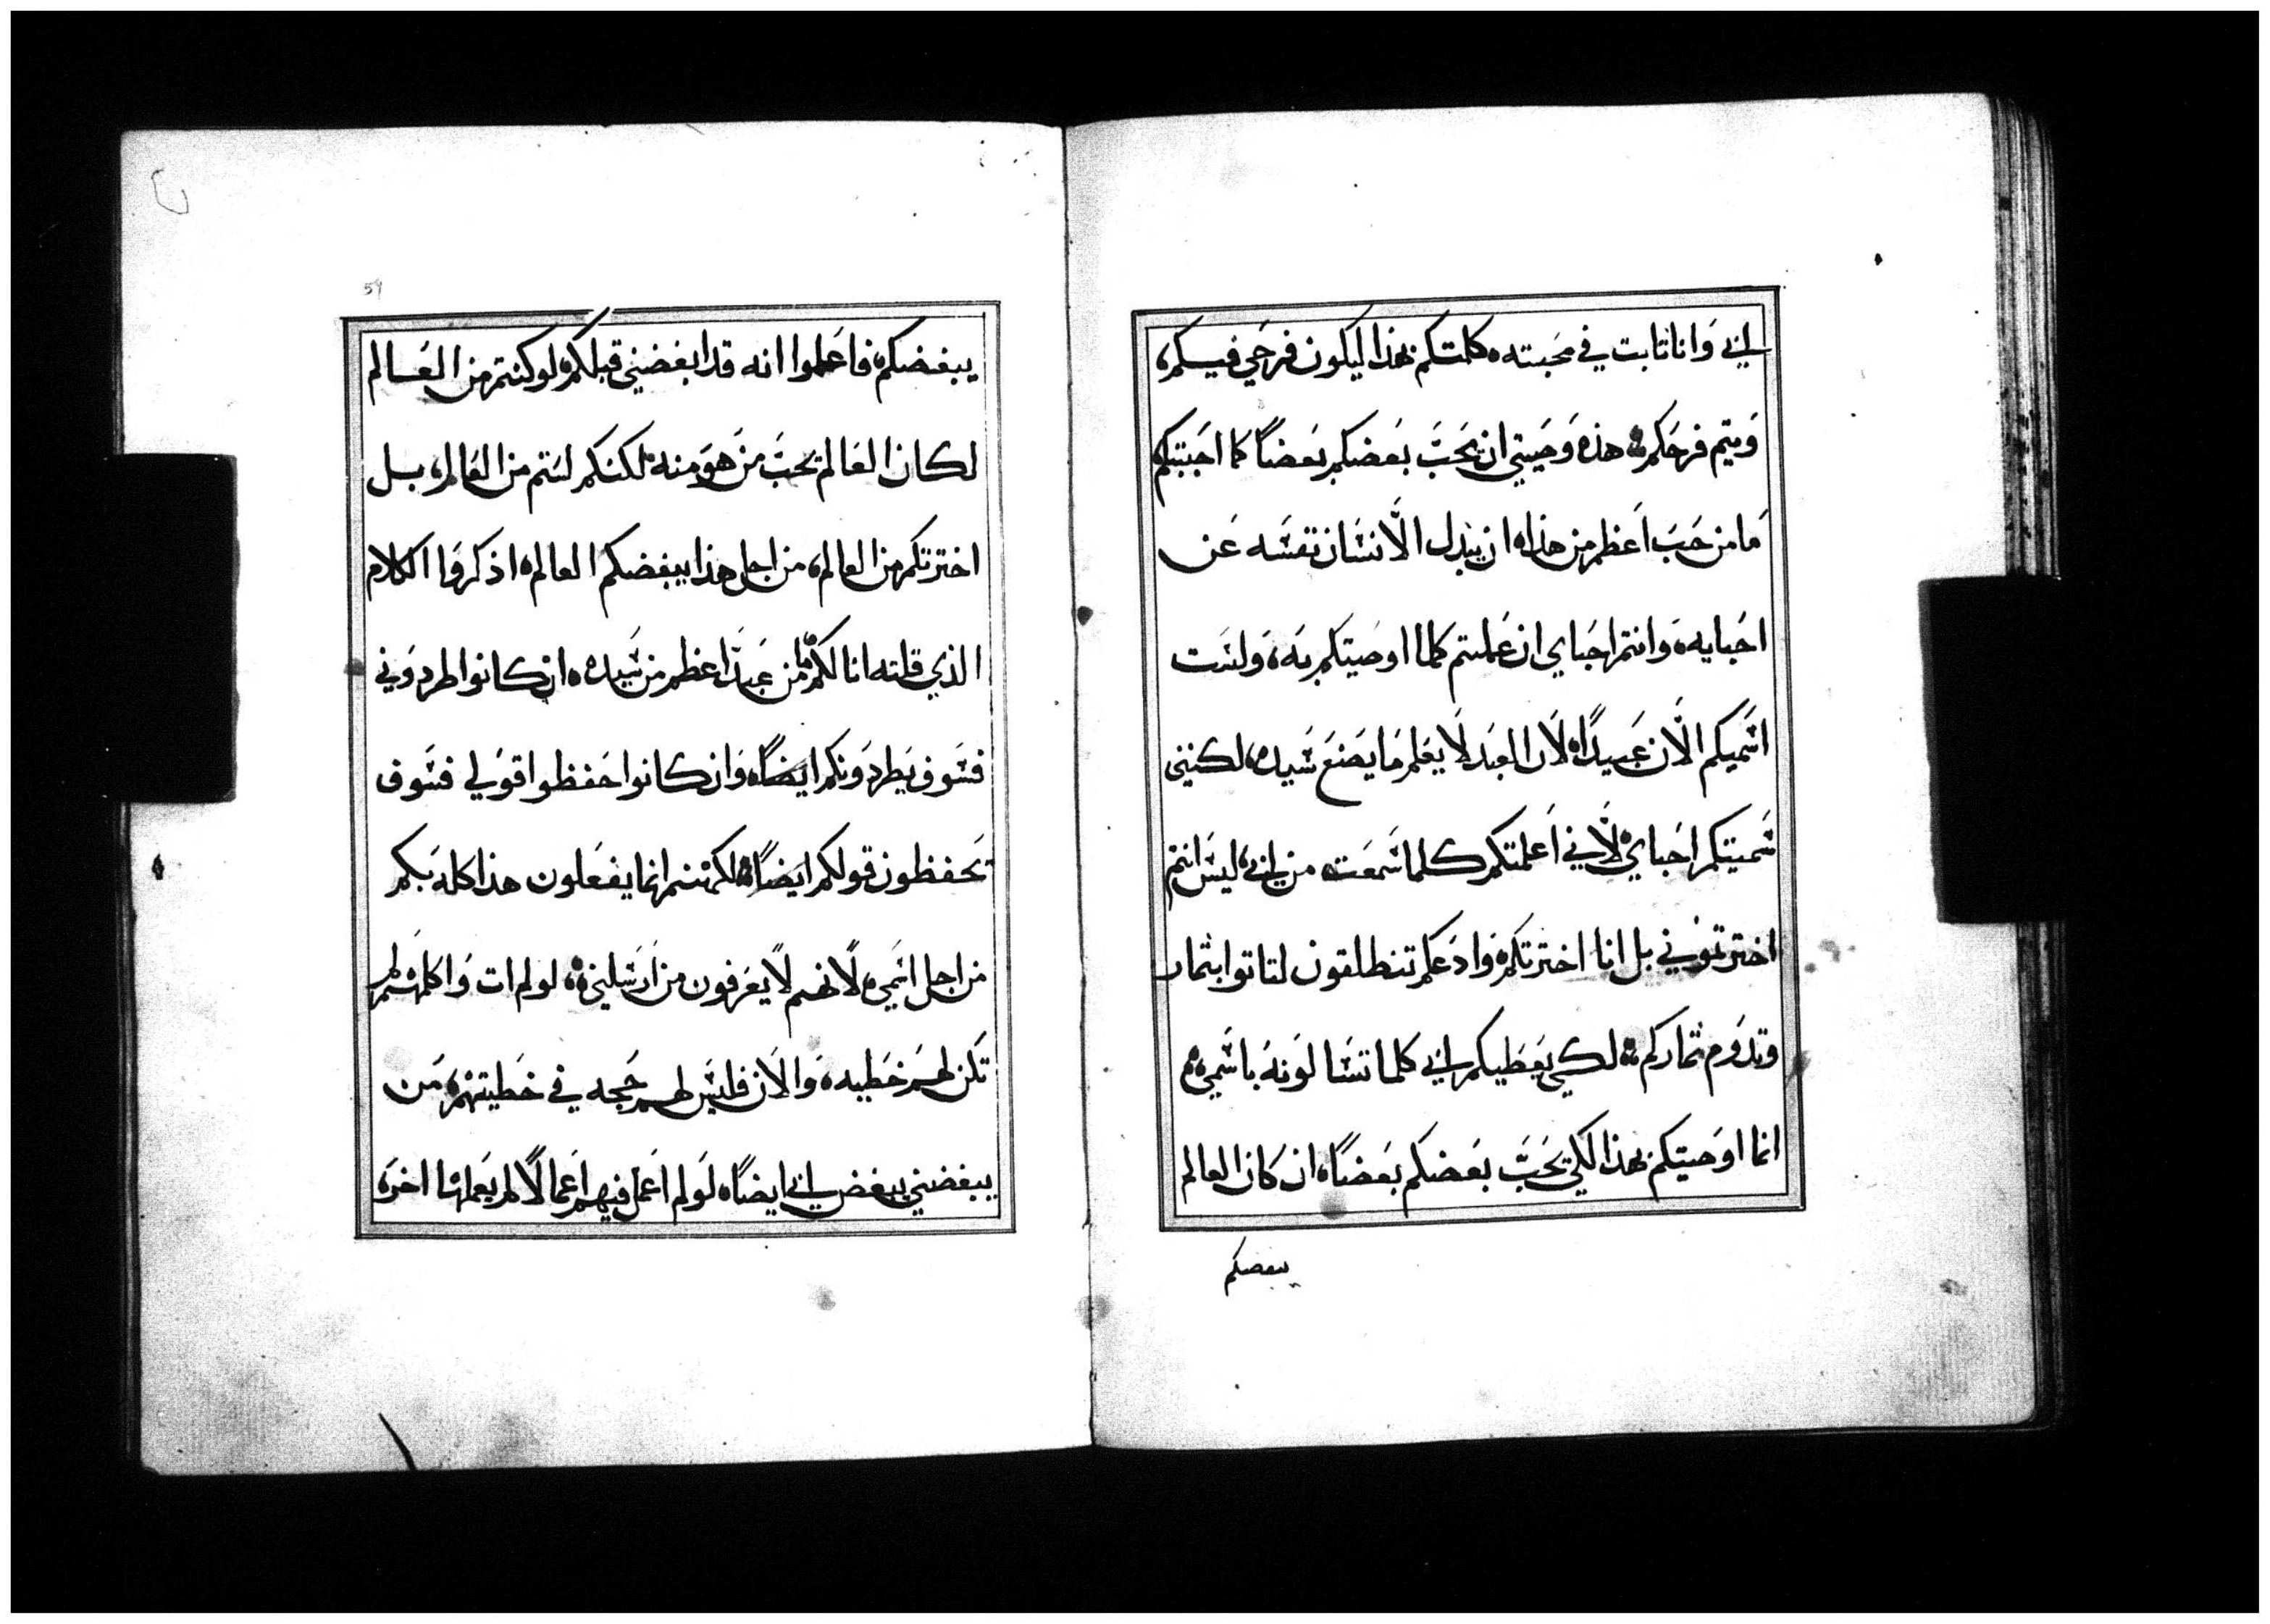 ابي وَانا ثابت في محَبته ه كلمتكم بهذا ليكون فرحَي فيكم
وَيتم فرحَكم هذه وَصَيتي ان يحَبَّ بعَضكم بعَضاً كما احَببتكم
مَا من حَبَ اَعظم من هذا ه ان يبذل الاَنسَان نفسَه عَن
احَبايه ه وَانتم احَباي ان عَملتم كلما اوصَيتكم به ه وَلسَت
اسَميكم الاَن عَبيداً ه لاَن العَبد لاَ يعَلم مَا يصَنعَ سَيده لكنني
سَميتكم احَباي لاَني اَعلمتكم كلما سَمعَت من ابي ليسَ انتم
اخترتموني بل انا اخترتكم وَادعَكم تنطلقون لتاتوا بثمار
وتدوَم ثماركم لكي يعَطيكم ابي كلما تسَالوَنهُ باسَمي ه
انما اوصَيتكم بهذا لكي يحَبَّ بعَضكم بعَضاً ه ان كاَن العالم
يبغضكم
59
يبغضكم ه فاعَلموا انه قد ابغضني قبلكم لو كنتم من العَالم
لكان العَالم يحبَّ منَ هوَ منه لكنكم لستم من العَالم بل
اخترتكم من العالم من اجل هذا يبغضكم العالم ه اذكروَا الكلام
الذي قلته انا لكم ما من عَبداً اعظم من سَيده ه ان كانوا طردوَني
فسَوف يَطردَونكم ايضَاً ه وَان كانوا حَفظوا قوَلي فسَوف
يحَفظون قولكم ايضَاً لكنهم انما يفعَلون هذا كله بَكم
من اجل اسَمي ه لاَنهم لاَ يعَرفون من ارَسَلني ه لو لم ات وَاكلمهم لم
تَكن لهم خَطيه ه وَالاَن فليسَ لهم حَجه في خَطيتهم من
يبغضني يبغض ابي ايضَاً ه لوَ لم اعَمل فيهم اعَمالاً لم يعَملها اخرَ